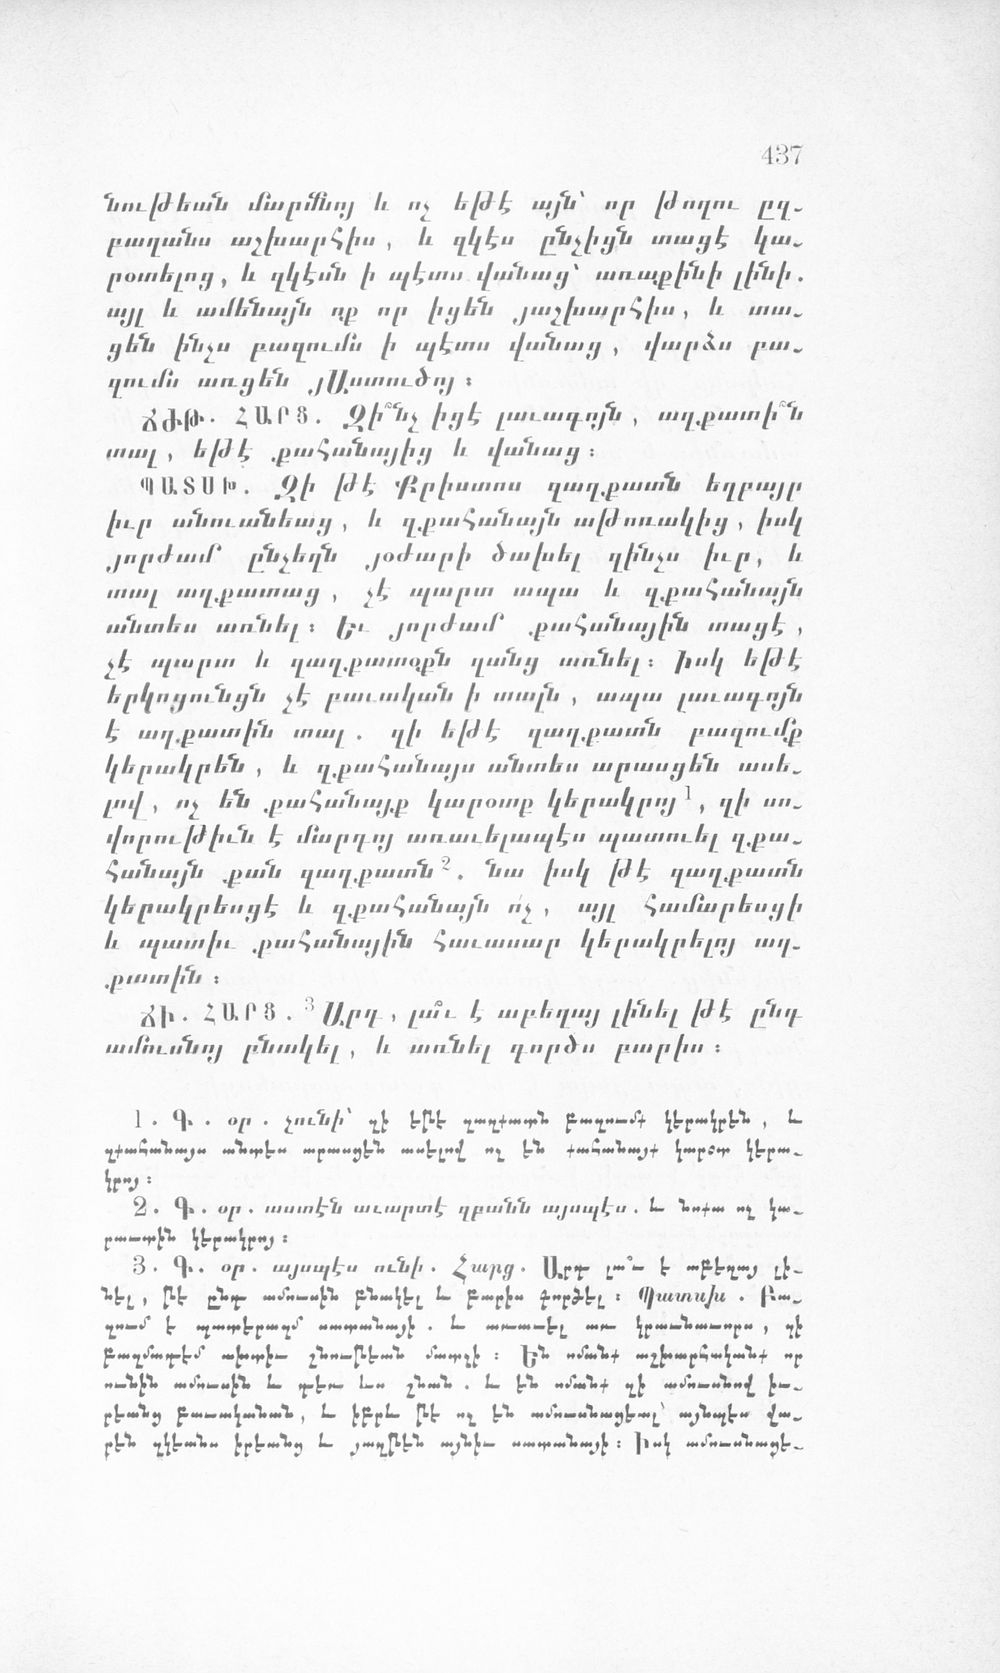 437
նութեան մարմնոյ և ոչ եթէ այն՝ որ թողու ըզ-
բաղանս աշխարհիս, և զկէս ընչիցն տացէ կա-
րօտելոց, և զկէսն ի պէտս վանաց՝ առաքինի լինի.
այլ և ամենայն ոք որ իցեն յաշխարհիս, և տա-
ցեն ինչս բազումս ի պէտս վանաց, վարձս բա-
զումս առցեն յԱստուծոյ։
ՃԺԹ. ՀԱՐՑ. Զի՞նչ իցէ լաւագոյն, աղքատի՞ն
տալ, եթէ քահանայից և վանաց։
ՊԱՏԱՍԽ. Զի թէ Քրիստոս զաղքատն եղբայր
իւր անուանեաց, և զքահանայն աթոռակից, իսկ
յորժամ ընչեղն յօժարի ծախել զինչս իւր, և
տալ աղքատաց, չէ պարտ ապա և զքահանայն
անտես առնել։ Եւ յորժամ քահանային տացէ,
չէ պարտ և զաղքատօքն զանց առնել։ Իսկ եթէ
երկոցունցն չէ բաւական ի տալն, ապա լաւագոյն
է աղքատին տալ. զի եթէ զաղքատն բազումք
կերակրեն, և զքահանայս անտես արասցեն ասե-
լով, ոչ են քահանայք կարօտք կերակրոյ1, զի սո-
վորութիւն է մարդոյ առաւելապէս պատուել զքա-
հանայն քան զաղքատն2. նա իսկ թէ զաղքատն
կերակրեսցէ և զքահանայն ո՛չ, այլ համարեսցի
և պատիւ քահանային հաւասար կերակրելոյ աղ-
քատին։
ՃԻ. ՀԱՐՑ. 3 Արդ, լա՞ւ է աբեղայ լինել թէ ընդ
ամուսնոյ բնակել, և առնել գործս բարիս։
1. Գ. օր. չունի՝ զի եթե զաղքատն բազումք կերակրեն, և
զքահանայս անտես արասցեն ասելով ոչ են քահանայք կարօտ կերա-
կրոյ։
2. Գ. օր. աստէն աւարտէ զբանն այսպէս. և նոքա ոչ կա-
րաստին կերակրոյ։
3. Գ. օր. այսպէս ունի. Հարց. Արդ լա՞ւ է աբեղայ լի-
նել, թե ընդ ամուսին բնակել և բարիս գործել։ Պատասխ. Բա-
զում է պատերազմ սատանայի. և առաւել առ կրաւնաւորս, զի
բազմադեմ ախտիւ շնութեան մարտչի։ Են ոմանք աշխարհականք որ
ունին ամուսին և դեռ ևս շնան. և են ոմանք զի ամուսնով իւ-
րեանց բաւականան, և իբրև թե ոչ են ամուսնացեալ՝ այնպես վա-
րեն զկեանս իրեանց և յաղթեն այնիւ սատանայի։ Իսկ ամուսնացե-